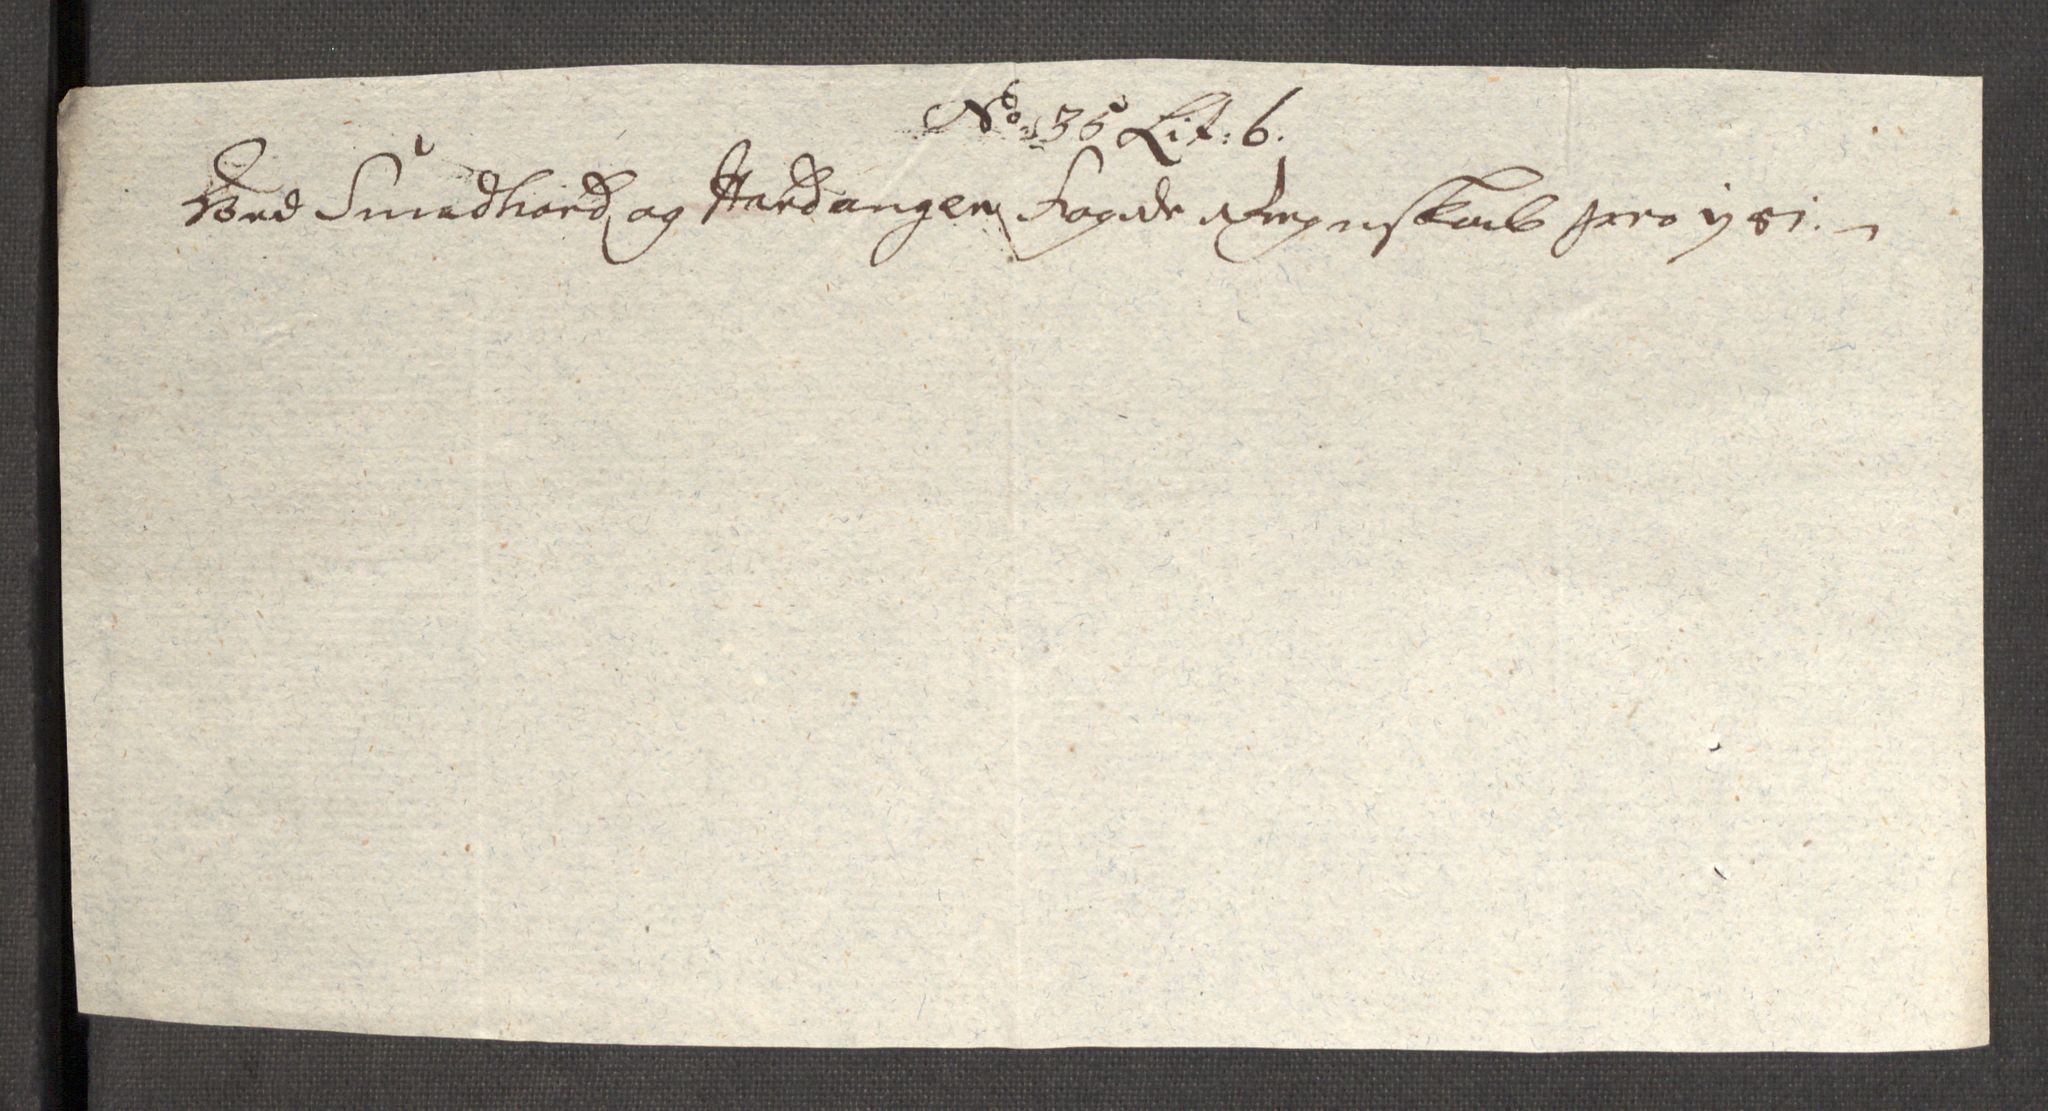 No: 35 Lit: b.
Ved Sundhord og Hardanger Fogde Regnskab pro 1781.